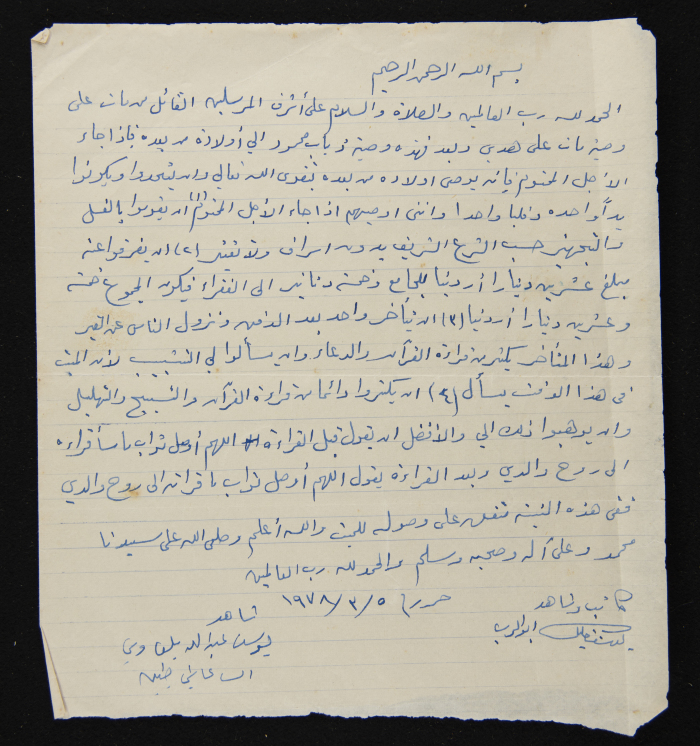 بسم الله الرحمن الرحيم
الحمد لله رب العالمين والصلاة والسلام على أشرف المرسلين القائل من مات على
وصية مات على هدى وبعد فهذه وصية ذياب محمود الى أولاده من بعده فاذا جاء
الأجل المحتوم فإنه يوصى اولاده من بعده بتقوى الله تعالى وان يتحدوا ويكونوا
يداً واحده وقلبا واحدا وانني اوصيهم اذا جاء الأجل المحتوم (١) ان يقوموا بالغسل
والتجهيز حسب الشرع الشريف بدون اسراف ولا تقتير (٢) ان يفرقوا عنه
مبلغ عشرين دينارا أردنيا للجامع وخمسة دنانير الى الفقراء فيكون المجموع خمسة
وعشرين دينارا أردنيا (٣) ان يتأخر واحد بعد الدفن ونزول الناس عن القبر
وهذا المتأخر يكثر من قراءة القرآن والدعاء وان يسألوا لي التثبيت لأن الميت
في هذا الوقت يسأل (٤) ان يكثروا دائما من قراءة القرآن والتسبيح والتهليل
وان يوهبوا ذلك الي والأفضل ان يقول قبل القراءة اللهم أوصل ثواب ما سأقراءه
الى روح والدي وبعد القراءة يقول اللهم أوصل ثواب ما قرأته الى روح والدي
ففى هذه النية على وصوله للميت والله أعلم وصلى الله على سيدنا
محمد وعلى آله وصحبه وسلم والحمد لله رب العالمين
حرر في ١٩٧٨/٣/٥
كاتب وشاهد
ابو الرب
شاهد
يوسف عبدالله